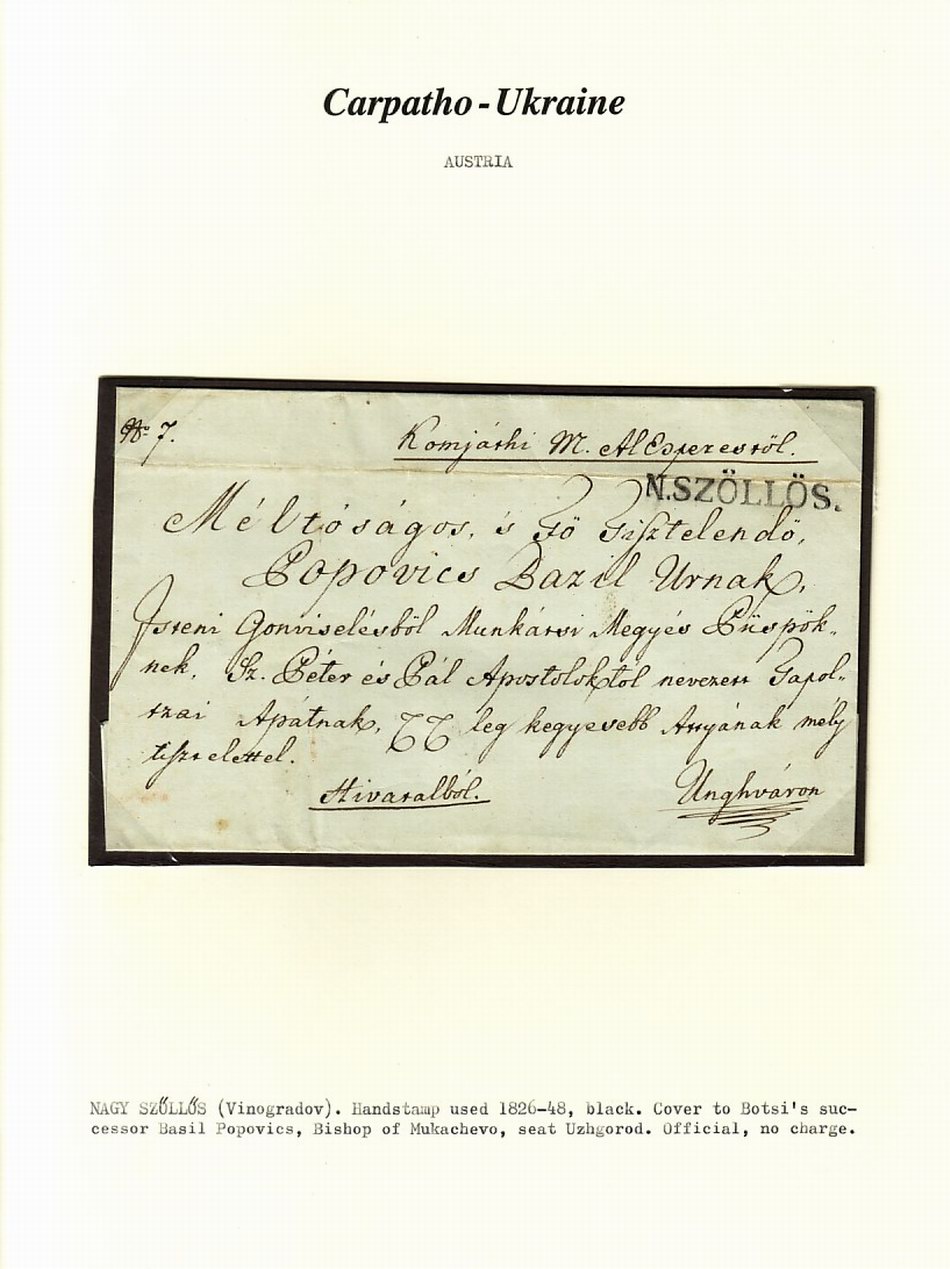 Carpatho - Ukraine
AUSTRIA
No. 7.
Komjáthi M. Al Esperestöl.
N.SZÖLLÖS.
Méltóságos, és Fö Tisztelendö,
Popovics Bazil Urnak,
Isteni Gonviselésböl Munkátsi Megyés Püspök„
nek, Sz. Péter és Pál Apostoloktól nevezett Tapol„
tzai Apátnak, TT leg kegyesebb Attyának mély
tisztelettel.
Hivatalból.
Unghváron
NAGY SZŰLLŰS (Vinogradov). Handstamp used 1826-48, black. Cover to Botsi's suc-
cessor Basil Popovics, Bishop of Mukachevo, seat Uzhgorod. Official, no charge.